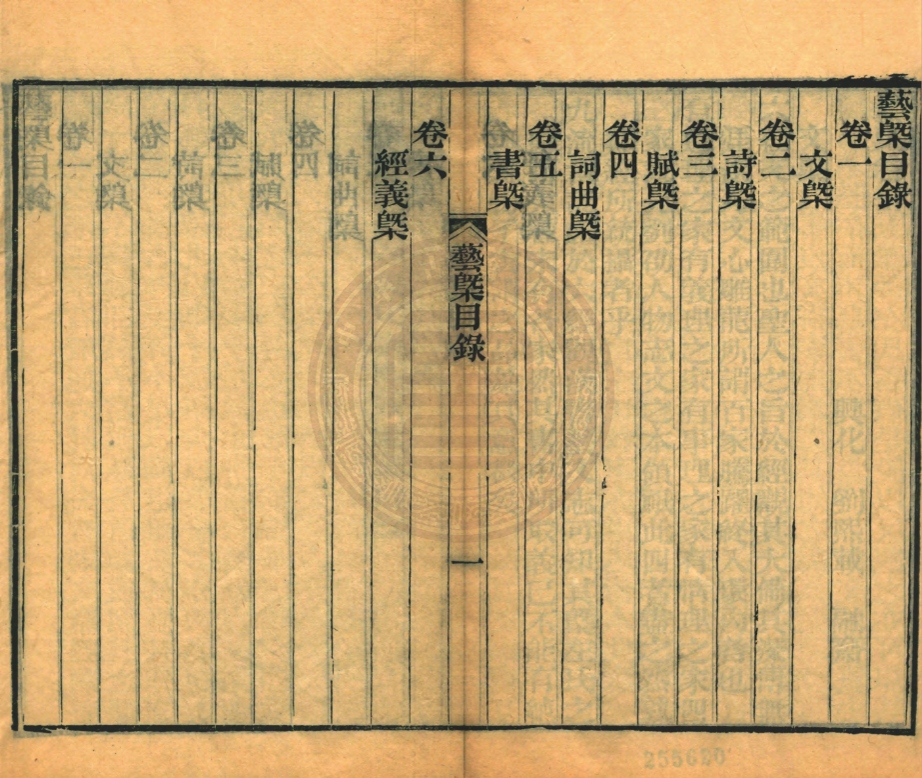 藝槩目錄
卷一
文槩
卷二
詩槩
卷三
賦槩
卷四
詞曲槩
卷五
書槩
卷六
經義槩
藝槩目錄
一
255620